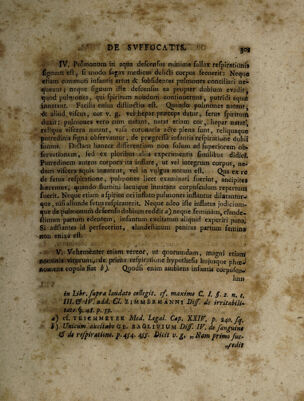 DE SUFFOCATIS.
IV. Pulmonum in aqua descensus minime fallax respirationis
signum est, si modo sagax medicus delicti corpus secuerit: Neque
etiam omnimoda infantis artus & subsidentes pulmones conciliari ne-
queunt; neque signum iste descensus ea propter dubium evadit,
quod pulmones, qui spiritum nondum continuerunt, putridi aquæ
innatent. Facilis enim distinctio est. Quando pulmones natant,
& aliud viscus, cor v. g. vel hepar præceps datur, fetus spiritum
duxit: pulmones vero cum natant, natat etiam cor, hepar natat,
reliqua viscera natant, vasa coronaria aëre plena sunt, reliquaque
putredinis signa observantur, de prægressa infantis respiratione dubii
sumus. Dictam hancce differentiam non solum ad superiorem ob-
servationem, sed ex pluribus aliis experimentis similibus didici.
Putredinem autem corporis tot instare, ut vel integrum corpus, non-
dum viscera aquis innatent, vel in vulgus notum est. Qua ex re
de fetus respiratione, pulmones licet examinati fuerint, ancipites
hæremus, quando flumini lacuique innatans corpusculum repertum
fuerit. Neque etiam a spiritu ori insflato pulmones instantur dilatantur-
que, nisi alienæ fetus respiraverit. Neque adeo iste insflatus judicium
que de pulmonum descensu dubium reddit a) neque feminam, clande-
stinum partum edentem, infantem excitatum aliquid experiri puto.
Si adstantes id perfecerint, clandestinum penitus partum femina
non enixa est.
V. Vehementer etiam vereor, ut quorundam, magni etiam
nominis virorum, de prima respiratione hypothesis hujusque phæ-
nomena copula fiat b). Quodsi enim ambiens infantis corpuscu-
lum
in Libr. supra laudato collegit. cf. maxime C. I. §. 2. n. 1.
III. & IV. add. Cl. ZIMMERMANNI Diss. de irritabili-
tate §. 48. p. 52.
a) cf. TEICHMEYER Med. Legal. Cap. XXIV. p. 240. sq.
b) Unicum excitabo GE. BAGLIVIUM Diss. IV. de sanguine
& de respiratione. p. 454. 455. Dicit v. g. „ Nam primo suc-
„cedit